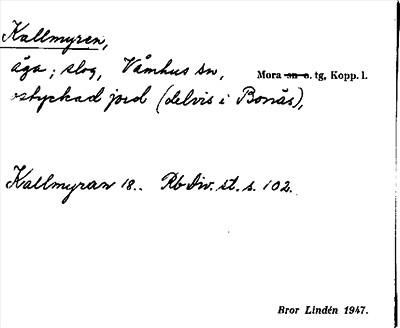 Kallmyren,
äga; slog, Våmhus sn, Mora sn o. tg, Kopp. l.
ostyckad jord (delvis i Bonäs),
Kallmyran 18.. Rb Div. st. s. 102.
Bror Lindén 1947.